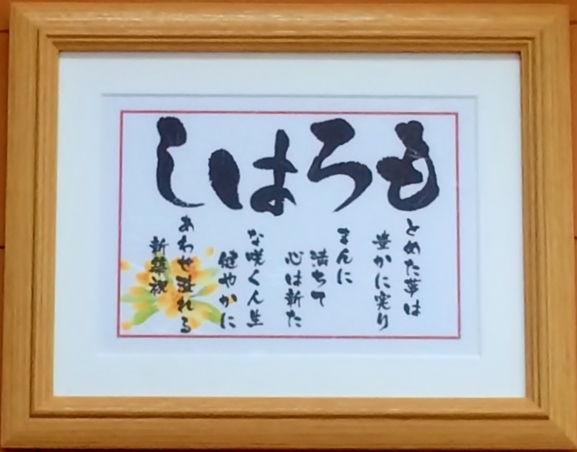 もろはし
とめた華は
豊かに実り
まんに
満ちて
心は新た
な咲く人生
健やかに
あわせ溢れる
新築祝